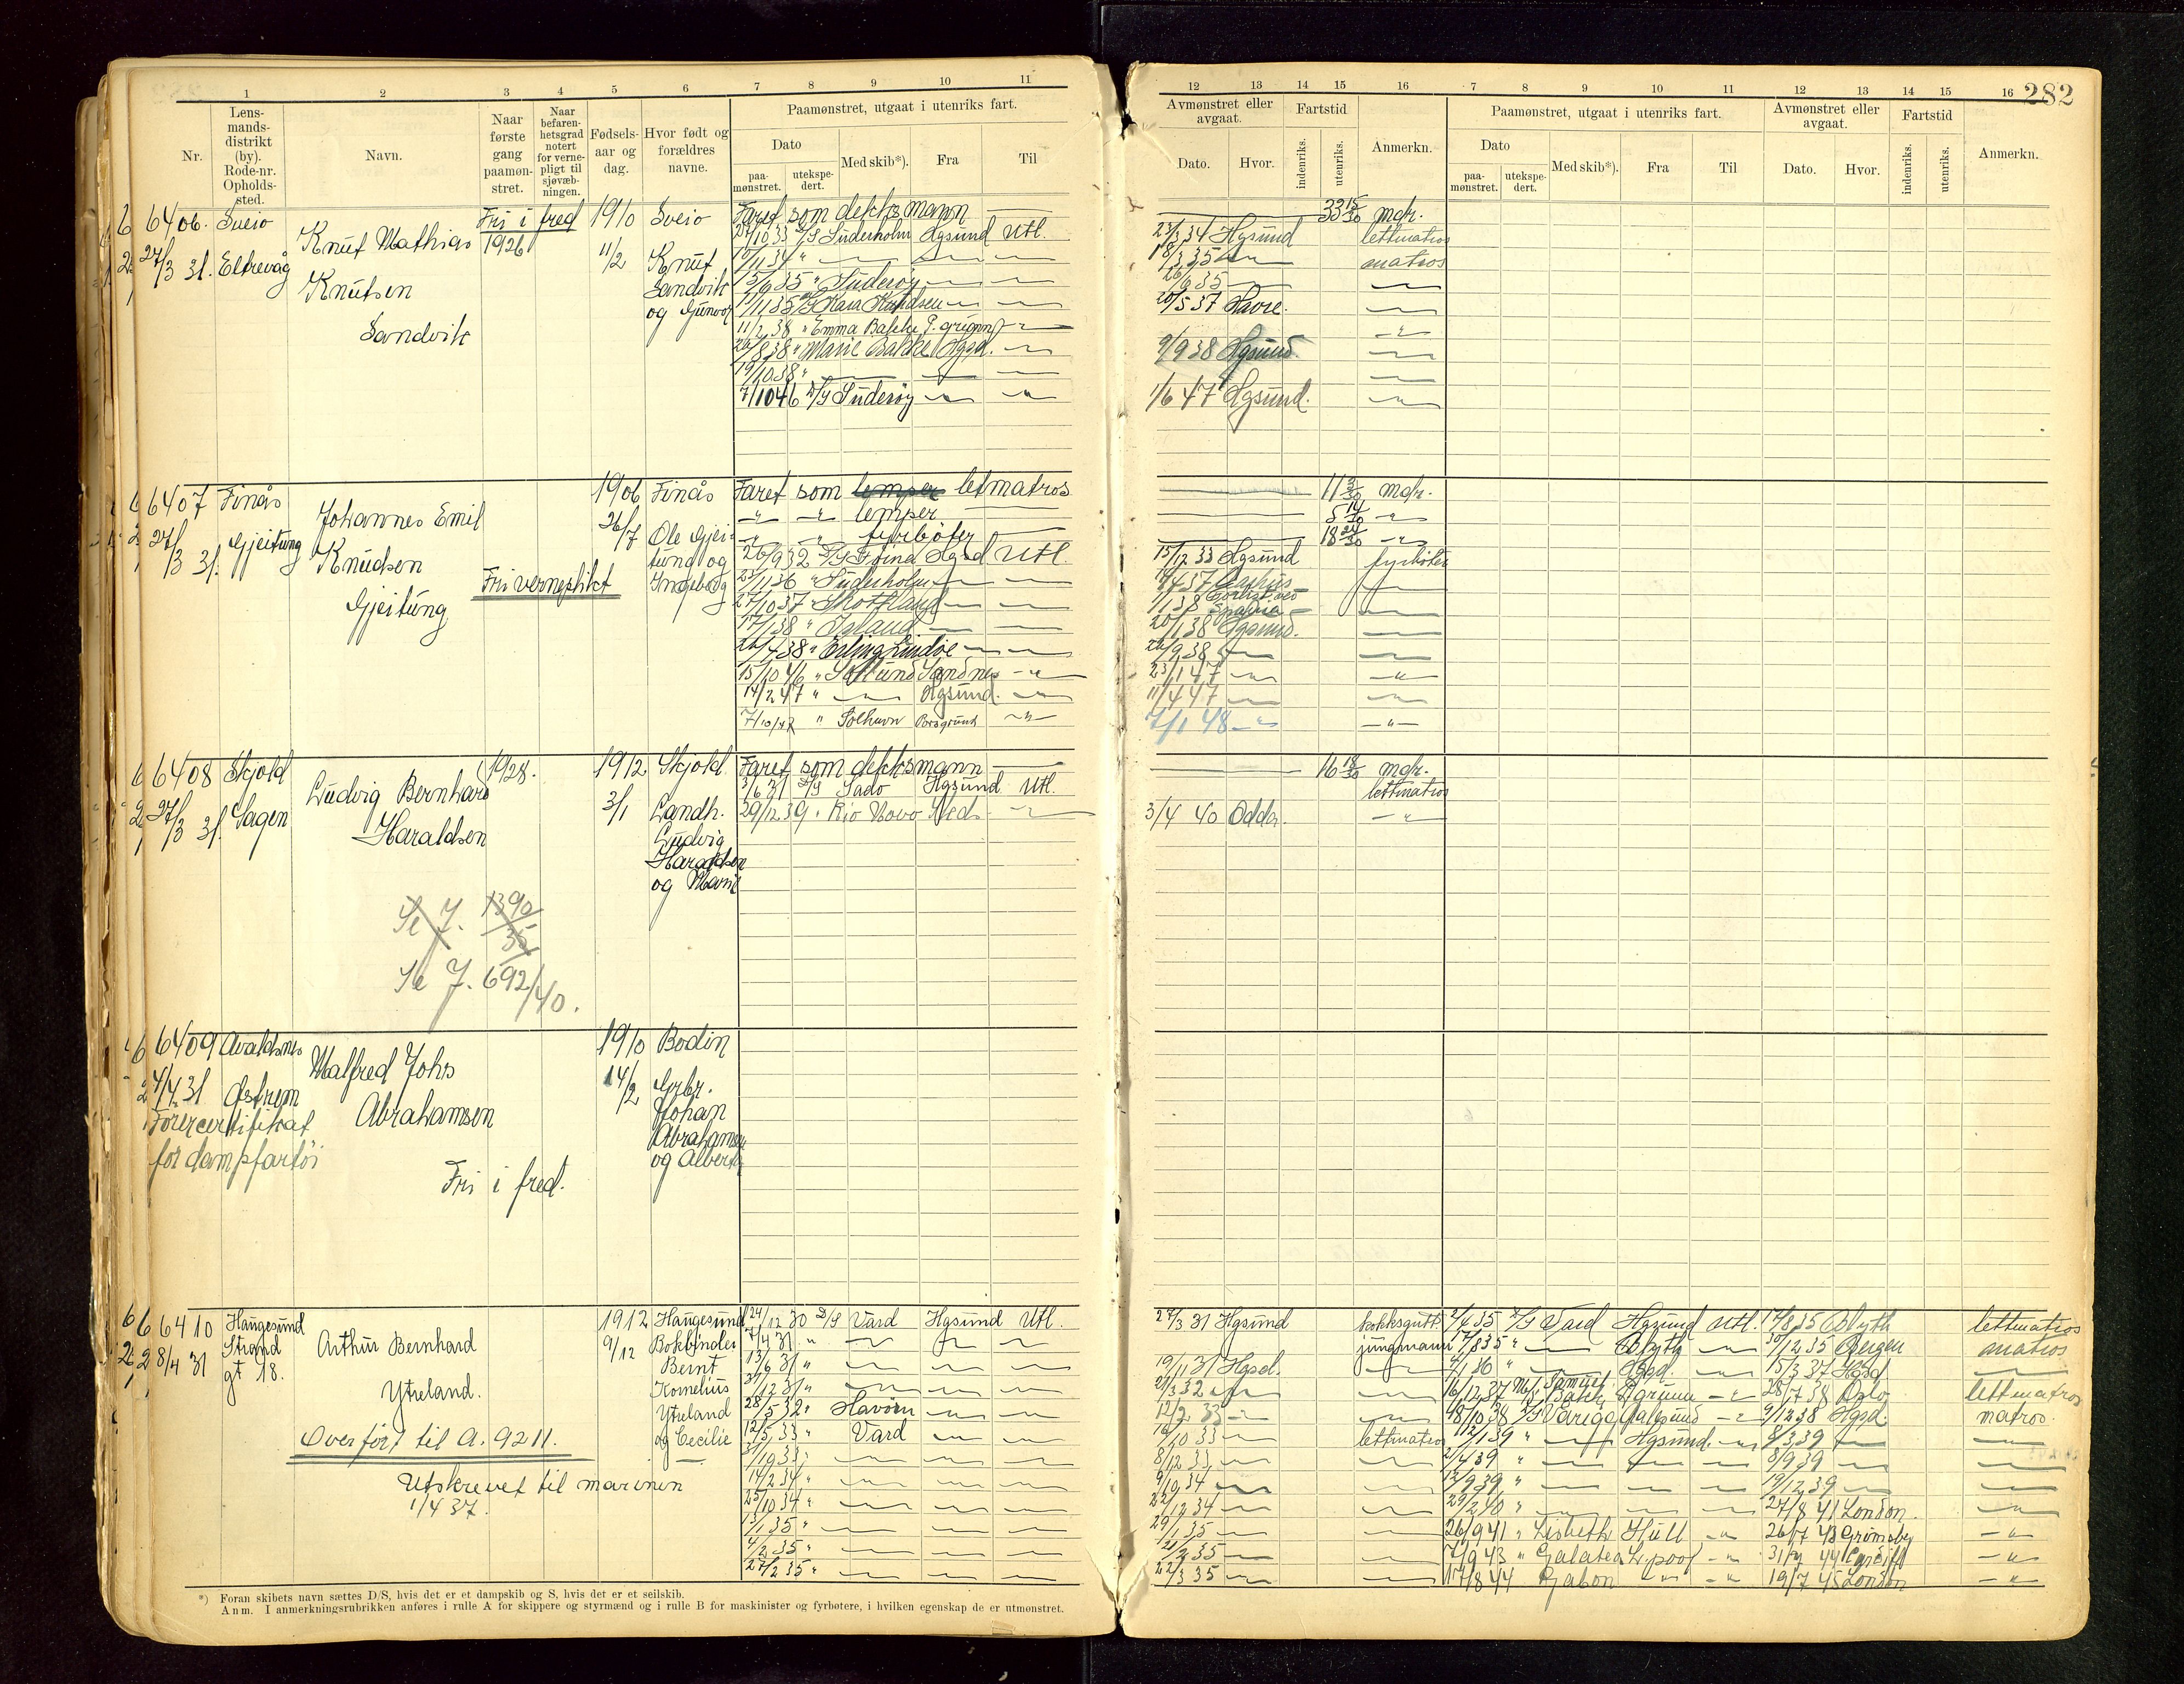 282
1 2 3 4 5 6 7 8 9 10 11
Nr.
Lensmandsdistrikt (by). Rode-nr. Opholdssted.
Navn.
Naar første gang paamønstret.
Naar befarenhetsgrad notert for vernepligt til sjøvæbningen.
Fødselsaar og dag.
Hvor født og forældres navne.
Paamønstret, utgaat i utenriks fart.
Dato
paamønstret.
utekspedert.
Med skib*).
Fra
Til
12 13 14 15 16 7 8 9 10 11 12 13 14 15 16
Avmønstret eller avgaat.
Dato.
Hvor.
Fartstid
indenriks.
utenriks.
Anmerkn.
Paamønstret, utgaat i utenriks fart.
Dato
paamønstret.
utekspedert.
Med skib*).
Fra
Til
Avmønstret eller avgaat.
Dato.
Hvor.
Fartstid
indenriks.
utenriks.
Anmerkn.
6406. Sveio
27/3 31. Eltrevåg
Knut Mathias
Knutsen
Sandvik
Fri i fred
1926
1910
11/2
Sveio
Knut
Sandvik
og Gunvor
Faret som dekksmann 33 15/30 mdr.
27/10 33 D/S Suderholm Hgsund Utl. Hgsund lettmatros
matros
15/6 35 " Suderøy 26/6 35
Kaia Knudsen 20/5 37 Havre.
11/2 38 " Emma Bakke P. grunn
26/8 38 " Marie Bakke Hgsd. 9/9 38 Hgsund.
19/10 38 "
7/10 46 D/S Suderøy 1/6 47 Hgsund.
6407 Finås
27/3 31. Gjeitung
Johannes Emil
Knudsen
Gjeitung
Fri verneplikt
1906
26/7
Finås
Ole Gjeitung og
Ingeborg
Faret som lemper letmatros 11 mdr.
" " lemper 5
" " fyrbøter 18
26/9 32 D/S Hgsd Utl. 15/12 33 Hgsund fyrbøter
23/11 36 " Suderholm
27/10 37 " Skotland
17/1 38 " Island 20/1 38 Hgsund.
26/4 38 " Erling Lindøe 26/9 38
15/10 46 " Sandnes 23/1 47
14/2 47 " Hgsund. 11/4 47
7/10/47 " Solhavn Porsgrunn 7/1 48
6408 Skjold
27/3 31. Sagen
Ludvig Bernhard
Haraldsen
1928.
1912
3/1
Skjold
Landh.
Ludvig
Haraldsen
og Marie
Faret som dekksmann 16 18/30 mdr.
3/6 31 D/S Sado Hgsund Utl. lettmatros
29/12 39 " Rio Novo 3/4 40 Odda.
Se J. 1390/35
Se J. 692/40.
6409 Avaldsnes
4/4 31 Østrem
Malfred Johs
Abrahamsen
1910
14/2
Bodin
Grbr.
Johan
Abrahamsen
og Alberta
Førercertifikat
for dampfartøi
Fri i fred.
6410 Haugesund
8/4 31 Strand
gt 18.
Arthur Bernhard
Ytreland.
1912
9/12
Haugesund
Bokbinder
Bernt
Kornelius
Ytreland
og Cecilie
Overført til A. 9211.
Utskrevet til marinen
1/4 37.
24/12 30 D/S Vard Hgsund Utl. 27/3 31 Hgsund kokksgutt
7/4 31 " jungmann
13/6 31 " 19/11 31 Hgsd.
31/12 31 " 21/3 32
28/5 32 " Havørn 12/2 33
12/5 33 " Vard 16/10 33 lettmatros
31/10 33 " 8/12 33
14/2 34 " 9/10 34
25/10 34 " 22/12 34
13/1 35 " 29/1 35
4/2 35 " 21/2 35
27/2 35 " 22/3 35
2/4 35 D/S Vard Hgsund Utl. 17/8 35 Blyth lettmatros
17/8 35 " Blyth 30/12 35 Bergen matros
4/1 36 " Hgsd. 15/3 37 Hgsd
16/12 37 M/S Samuel Bakke 28/7 38 Oslo lettmatros
18/10 38 D/S 9/12 38 Hgsd. matros.
12/1 39 " Hgsund. 8/3 39
2/4 39 " 8/9 39
12/9 39 " 19/12 39
29/2 40 " 27/8 41 London.
26/9 41 " Lisbeth Hull 26/7 43 Grimsby
7/9 43 " Galatea L.pool 44 Cardiff
17/8 44 Gabon 19/7 45 London
*) Foran skibets navn sættes D/S, hvis det er et dampskib og S, hvis det er et seilskib.
Anm. I anmerkningsrubrikken anføres i rulle A for skippere og styrmænd og i rulle B for maskinister og fyrbøtere, i hvilken egenskap de er utmønstret.